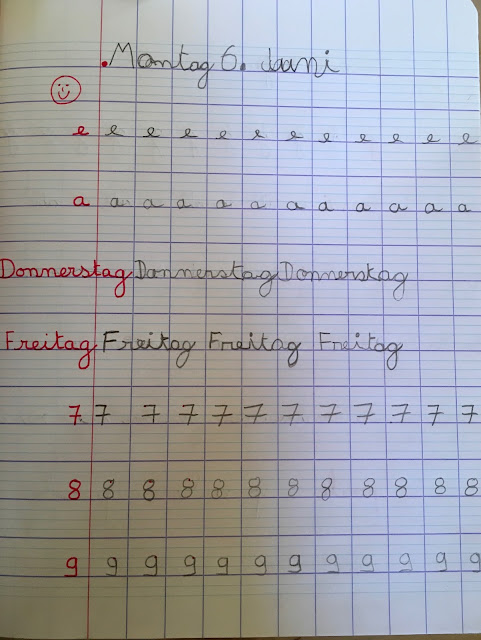 .Montag 6. Juuni
e e e e e e e e e e e e
a a a a a a a a a a a a
Donnerstag Donnerstag Donnerstag
Freitag Freitag Freitag Freitag
7. 7 7 7 7 7 7 7 7 7 7 7
8 8 8 8 8 8 8 8 8 8 8 8
9 9 9 9 9 9 9 9 9 9 9 9